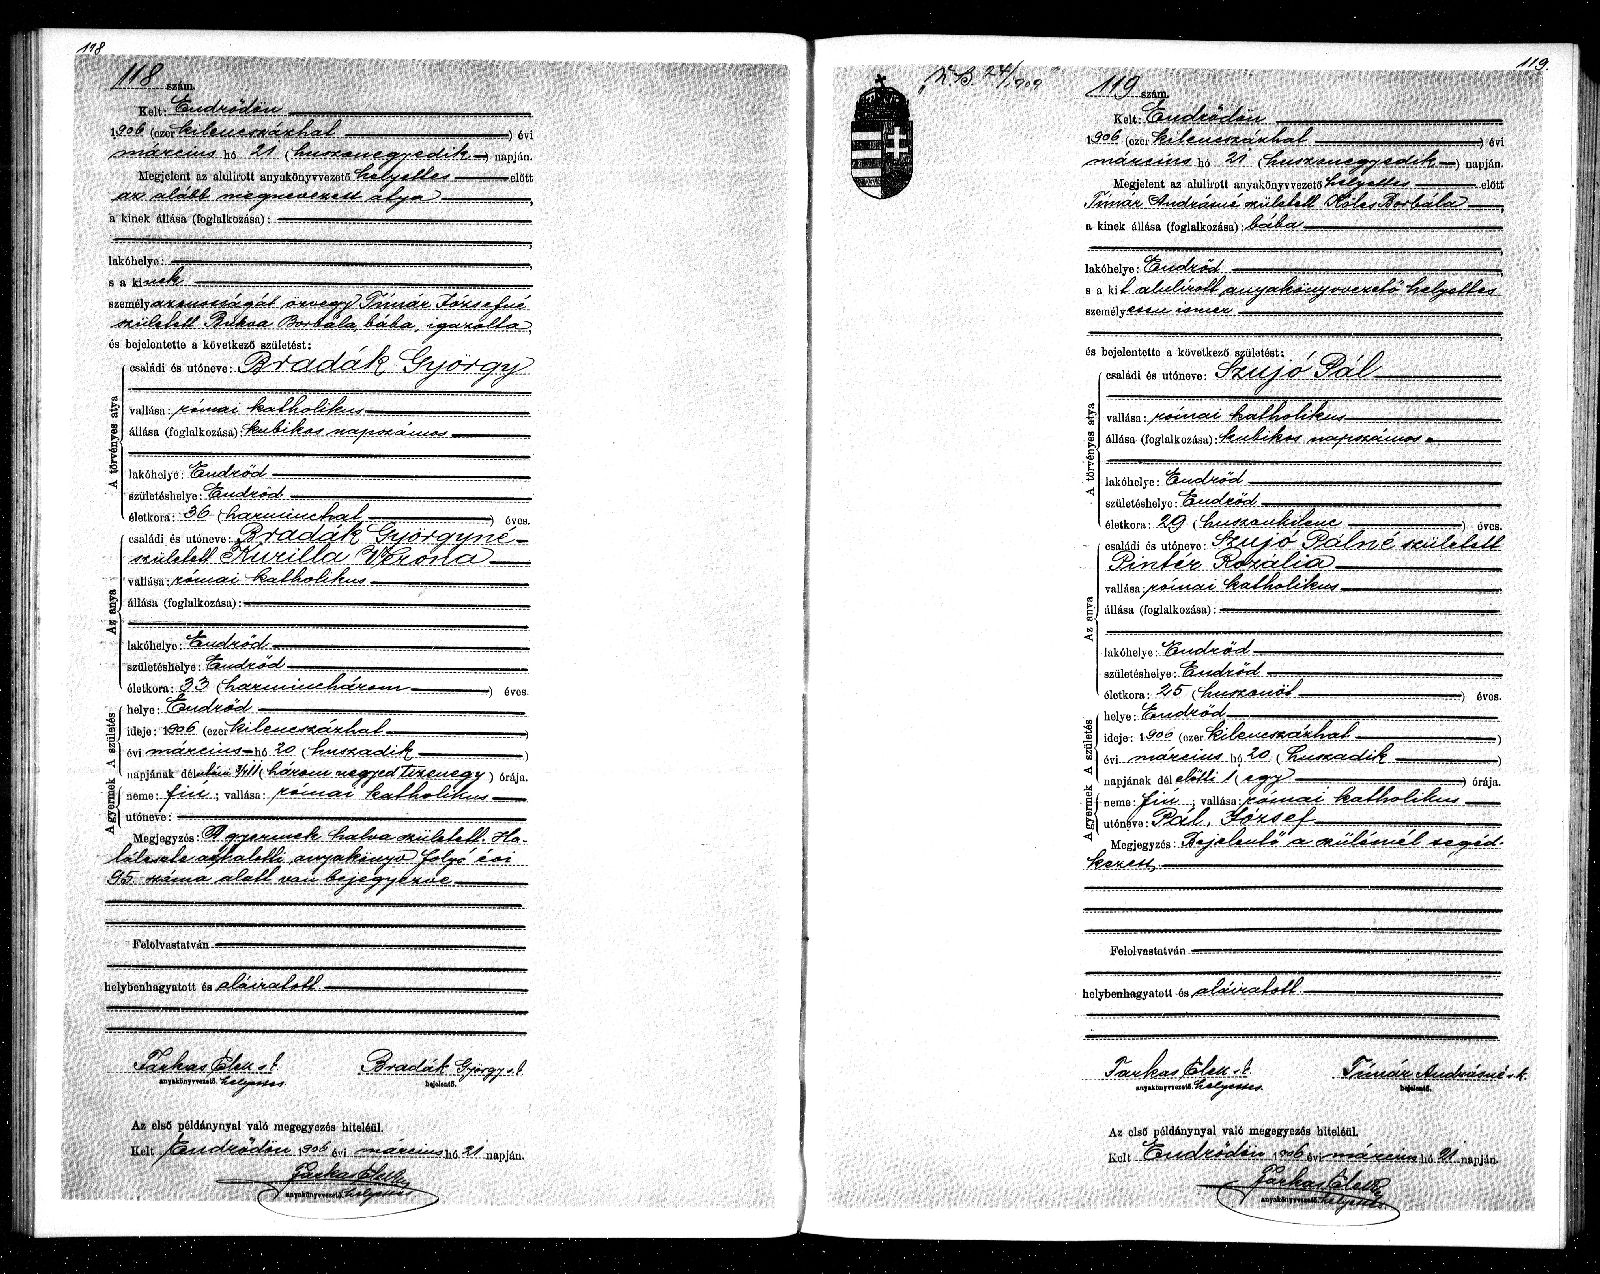 118
118 szám.
Kelt: Endrődön
1906 (ezer kilencszázhat ) évi
március hó 21 (huszonegyedik ) napján.
Megjelent az alulirott anyakönyvvezető helyettes előtt
az alább megnevezett atya ,
a kinek állása (foglalkozása):
,
lakóhelye: ,
s a kinek
személyazonosságát özvegy Tímár Józsefné
született Bukva Borbála, bába, igazolta,
és bejelentette a következő születést:
A törvényes atya
családi és utóneve: Bradák György
vallása: római katholikus
állása (foglalkozása): kubikos napszámos
lakóhelye: Endrőd
születéshelye: Endrőd
életkora: 36 (harminchat ) éves.
Az anya
családi és utóneve: Bradák Györgyné
született Kurilla Verona
vallása: római katholikus
állása (foglalkozása):
lakóhelye: Endrőd
születéshelye: Endrőd
életkora: 33 (harminchárom ) éves.
A születés
helye: Endrőd
ideje: 1906 (ezer kilencszázhat )
évi március hó 20 (huszadik )
napjának délutáni 3/4 11 (három negyed tizenegy ) órája.
A gyermek
neme: fiú ; vallása: római katholikus
utóneve:
Megjegyzés: A gyermek halva született. Ha-
lálesete a halotti anyakönyv folyó évi
95 száma alatt van bejegyezve
Felolvastatván
helybenhagyatott és aláiratott
Farkas Elek s. k. Bradák György s. k.
anyakönyvvezető. helyettes bejelentő.
Az első példánynyal való megegyezés hiteléül.
Kelt Endrődön 1906 évi március hó 21 napján.
Farkas Elek
anyakönyvvezető. helyettes
119.
24/909
119 szám.
Kelt: Endrődön
1906 (ezer kilencszázhat ) évi
március hó 21 (huszonegyedik ) napján.
Megjelent az alulirott anyakönyvvezető helyettes előtt
Tímár Andrásné született Héles Borbála ,
a kinek állása (foglalkozása): bába
,
lakóhelye: Endrőd ,
s a kit alulirott anyakönyvvezető helyettes
személyesen ismer
,
és bejelentette a következő születést:
A törvényes atya
családi és utóneve: Szujó Pál
vallása: római katholikus
állása (foglalkozása): kubikos napszámos
lakóhelye: Endrőd
születéshelye: Endrőd
életkora: 29 (huszonkilenc ) éves.
Az anya
családi és utóneve: Szujó Pálné született
Pintér Rozália
vallása: római katholikus
állása (foglalkozása):
lakóhelye: Endrőd
születéshelye: Endrőd
életkora: 25 (huszonöt ) éves.
A születés
helye: Endrőd
ideje: 1906 (ezer kilencszázhat )
évi március hó 20 (huszadik )
napjának dél előtti 1 (egy ) órája.
A gyermek
neme: fiú ; vallása: római katholikus
utóneve: Pál, József
Megjegyzés: Bejelentő a szülésnél segéd-
kezett,
Felolvastatván
helybenhagyatott és aláiratott
Farkas Elek s. k. Tímár Andrásné s. k.
anyakönyvvezető. helyettes. bejelentő.
Az első példánynyal való megegyezés hiteléül.
Kelt Endrődön 1906 évi március hó 21 napján.
Farkas Elek
anyakönyvvezető. helyettes